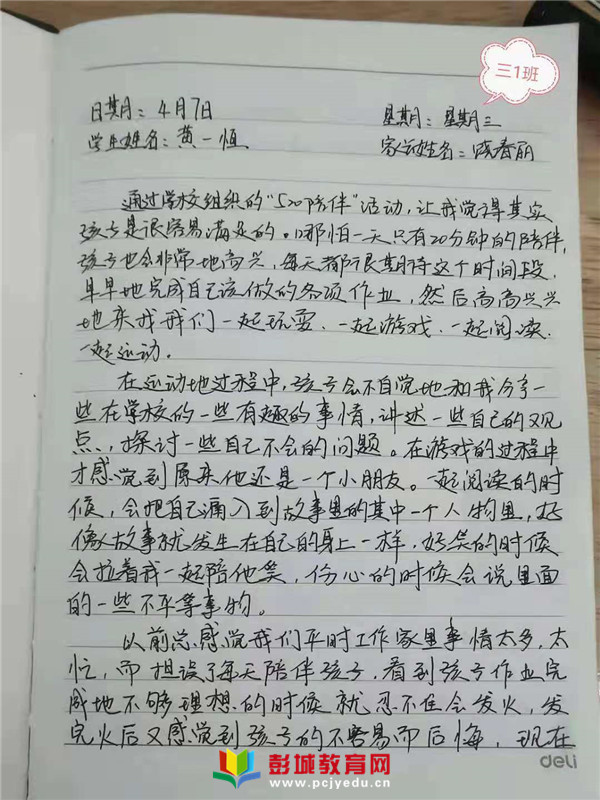 三1班
日期：4月7日 星期：星期三
学生姓名：黄一恒 家长姓名：陈春丽
通过学校组织的“520陪伴”活动，让我觉得其实
孩子是很容易满足的。哪怕一天只有20分钟的陪伴，
孩子也会非常地高兴，每天都很期待这个时间段，
早早地完成自己该做的各项作业，然后高高兴兴
地来找我们一起玩耍、一起游戏、一起阅读、
一起运动。
在运动地过程中，孩子会不自觉地和我分享一
些在学校的一些有趣的事情，讲述一些自己的观
点，探讨一些自己不会的问题。在游戏的过程中
才感觉到原来他还是一个小朋友。一起阅读的时
候，会把自己涌入到故事里的其中一个人物里，好
像故事就发生在自己的身上一样，好笑的时候
会拉着我一起陪他笑，伤心的时候会说里面
的一些不平等事物。
以前总感觉我们平时工作家里事情太多，太
忙，而担误了每天陪伴孩子，看到孩子作业完
成地不够理想的时候就忍不住会发火，发
完火后又感觉到孩子的不容易而后悔，现在
deli
彭城教育网
www.pcjyedu.cn